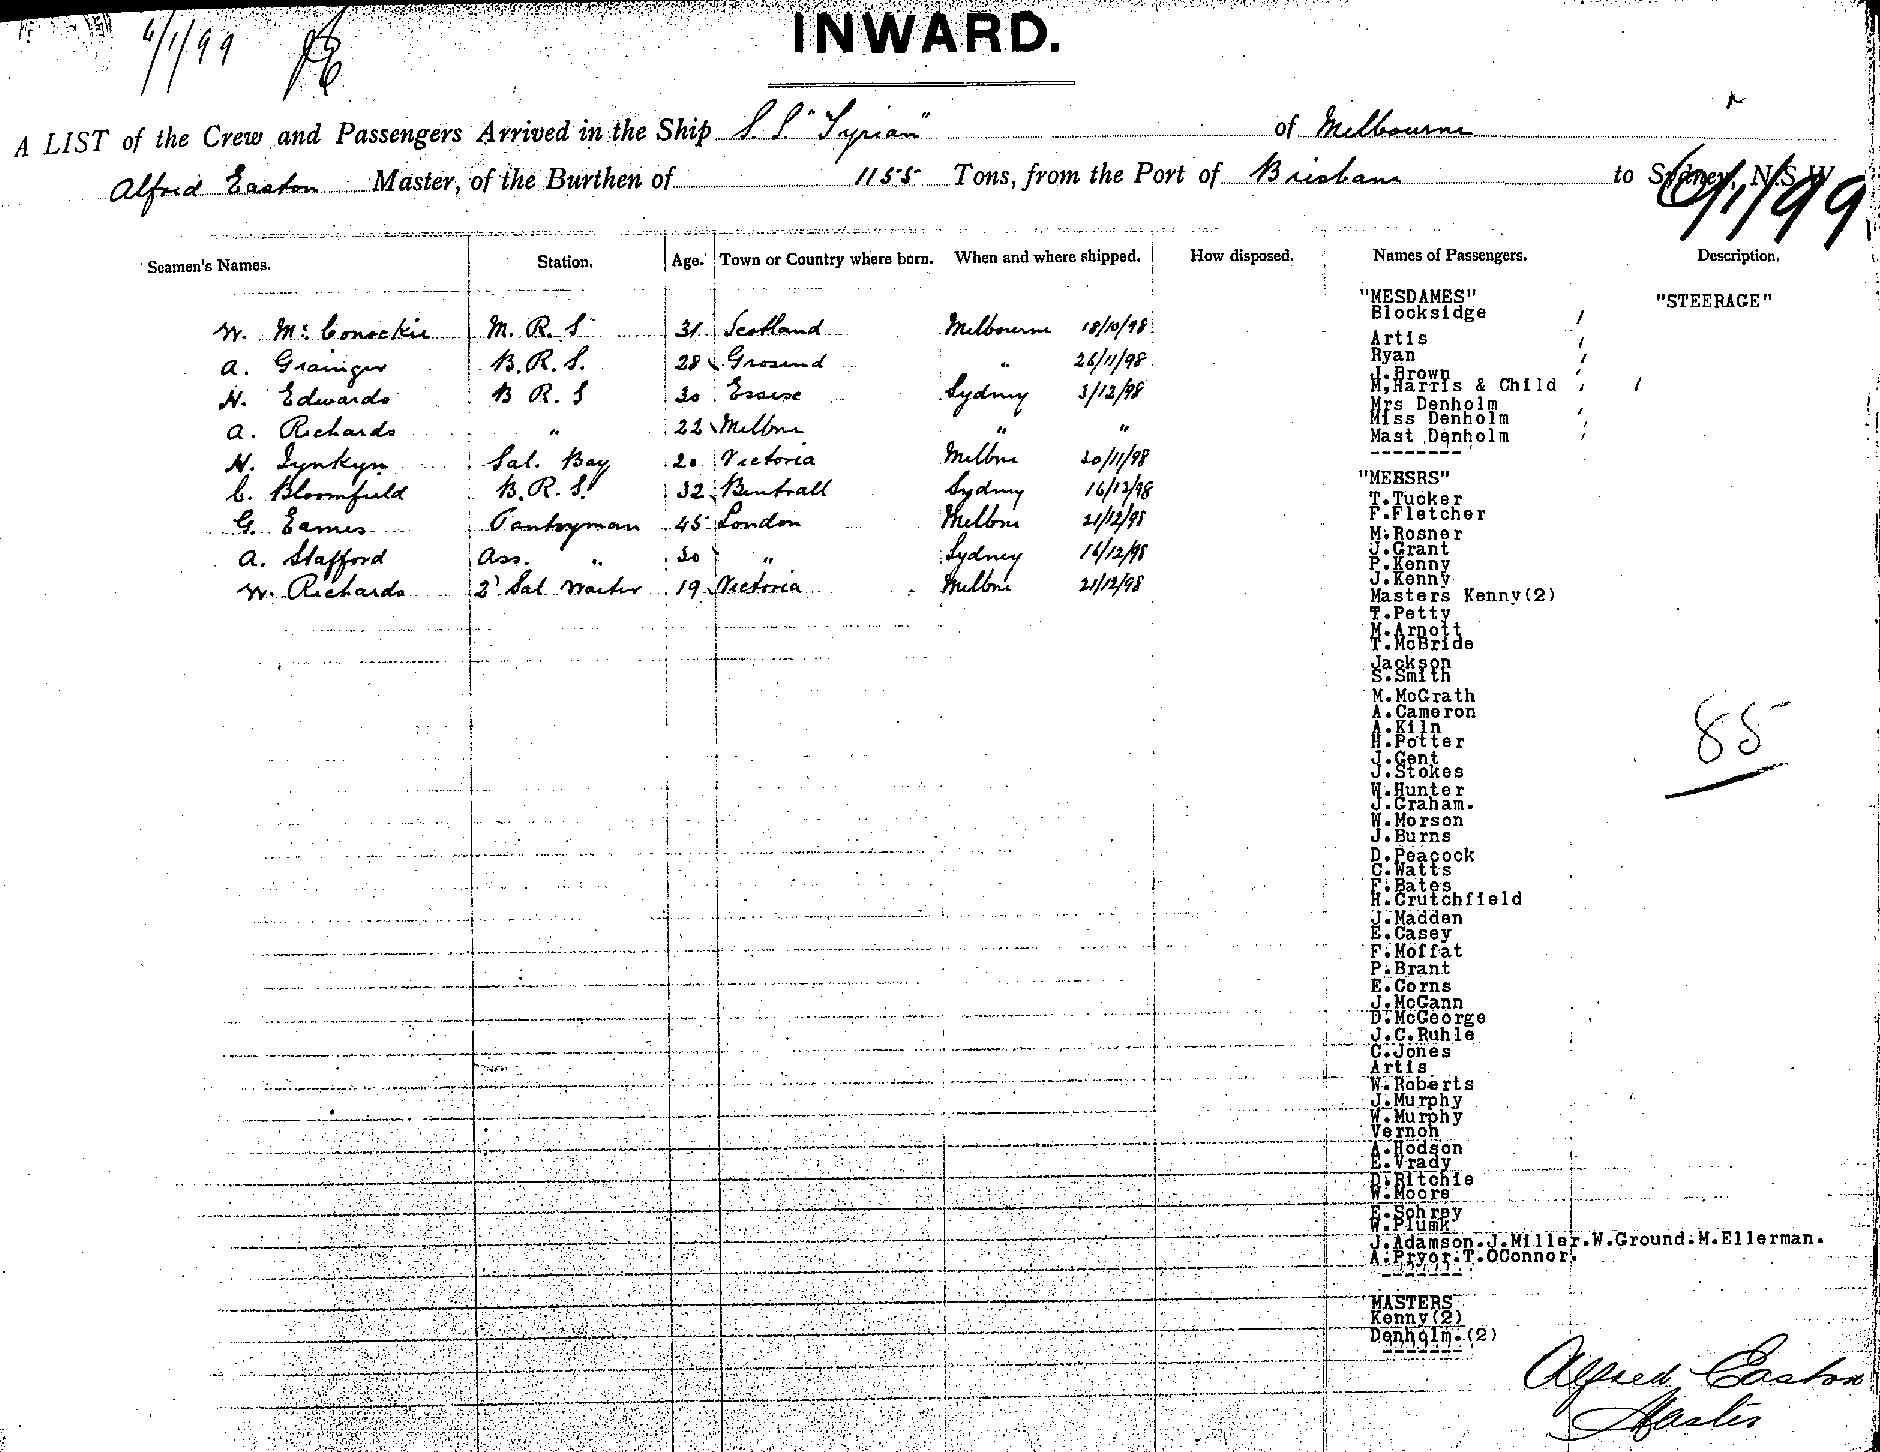 6/1/99
INWARD.
A LIST of the Crew and Passengers Arrived in the Ship S.S. "Tyrian" of Melbourne
Alfred Easton Master, of the Burthen of 1155 Tons, from the Port of Brisbane to Sydney, N.S.W.
6/1/99
Seamen's Names. Station. Age. Town or Country where born. When and where shipped. How disposed. Names of Passengers. Description.
W. McConockie M. R. S 31 Scotland Melbourne 18/10/98
A. Grainger B. R. S. 28 " 26/11/98
H. Edwards B R. S 30 Essex Sydney 3/12/98
A. Richards " 22 Melbne " "
H. Sal. Bay 20 Victoria Melbne 20/11/98
C. Bloomfield B. R. S. 32 Sydney 16/12/98
G. Eames Pantryman 45 London Melbne 21/12/98
A. Stafford Ass. " 30 " Sydney 16/12/98
W. Richards 2' Sal Waiter 19 Victoria Melbne 21/12/98
"MESDAMES" "STEERAGE"
Blocksidge
Artis
Ryan
J.Brown
M.Harris & Child
Mrs Denholm
Miss Denholm
Mast Denholm
--------
"MEBSRS"
T.Tucker
F.Fletcher
M.Rosner
J.Grant
P.Kenny
J.Kenny
Masters Kenny(2)
T.Petty
M.Arnott
T.McBride
Jackson
S.Smith
M.McGrath
A.Cameron
A.Kiln
H.Potter
J.Gent
J.Stokes
W.Hunter
J.Graham.
W.Morson
J.Burns
D.Peacock
C.Watts
F.Bates
H.Crutchfield
J.Madden
E.Casey
F.Moffat
P.Brant
E.Corns
J.McGann
D.McGeorge
J.C.Ruhle
C.Jones
Artis
W.Roberts
J.Murphy
W.Murphy
Vernon
A.Hodson
E.Vrady
D.Ritchie
W.Moore
E.Sohrey
W.Plumk
J.Adamson.J.Miller.W.Ground.M.Ellerman.
A.Pryor.T.OConnor.
-------
MASTERS
Kenny(2)
Denholm.(2)
-------
85
Alfred Easton
Master